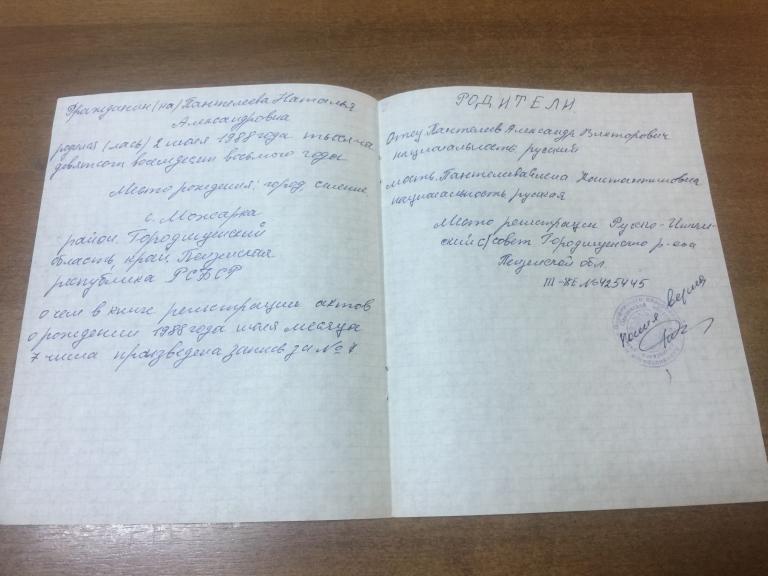 Гражданин(на) Пантелеева Наталья
Александровна
родился (лась) 2 июля 1988 года тысяча
девятсот восемдесят восьмого года
Место рождения: город, селение
с. Можарка
район. Городищенский
область, край Пензенская
республика РСФСР
о чем в книге регистрации актов
о рождении 1988 года июля месяца
7 числа произведена запись за № 7
РОДИТЕЛИ
Отец Пантелеев Александр Викторович
национальность русский
мать. Пантелеева Елена Константиновна
национальность русская
Место регистрации Русско-Ишим-
ский с/совет Городищенского р-она
Пензенской обл.
III-ЖЕ № 425445
копия верна